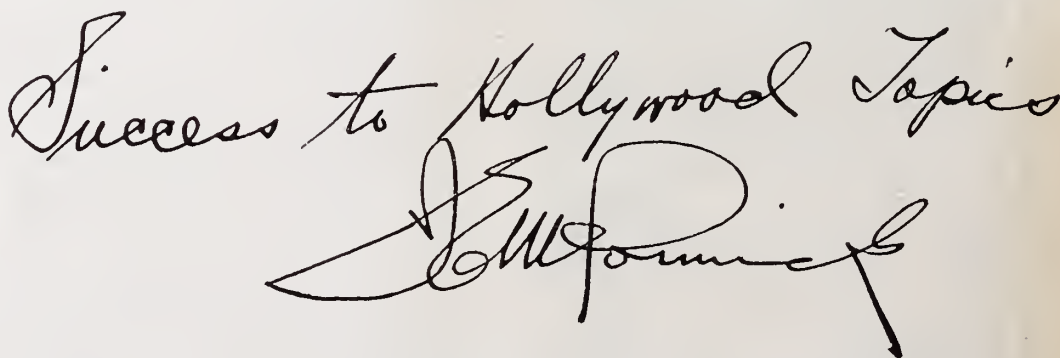 Success to Hollywood Topics
McCormick